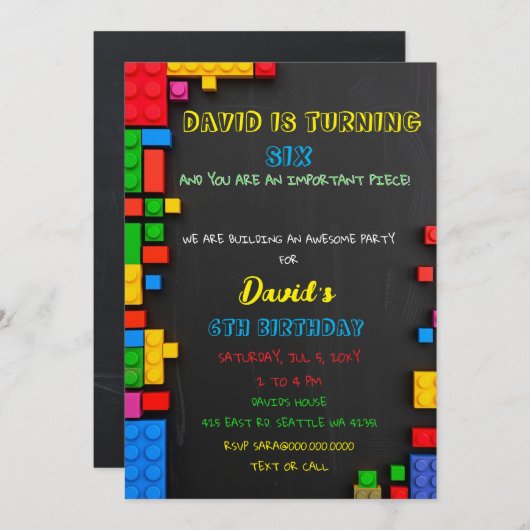 DAVID IS TURNING
SIX
AND YOU ARE AN IMPORTANT PIECE!
WE ARE BUILDING AN AWESOME PARTY
FOR
David's
6TH BIRTHDAY
SATURDAY, JUL 5, 20XY
2 TO 4 PM
DAVIDS HOUSE
425 EAST RD. SEATTLE WA 42351
RSVP SARA@000.000.0000
TEXT OR CALL